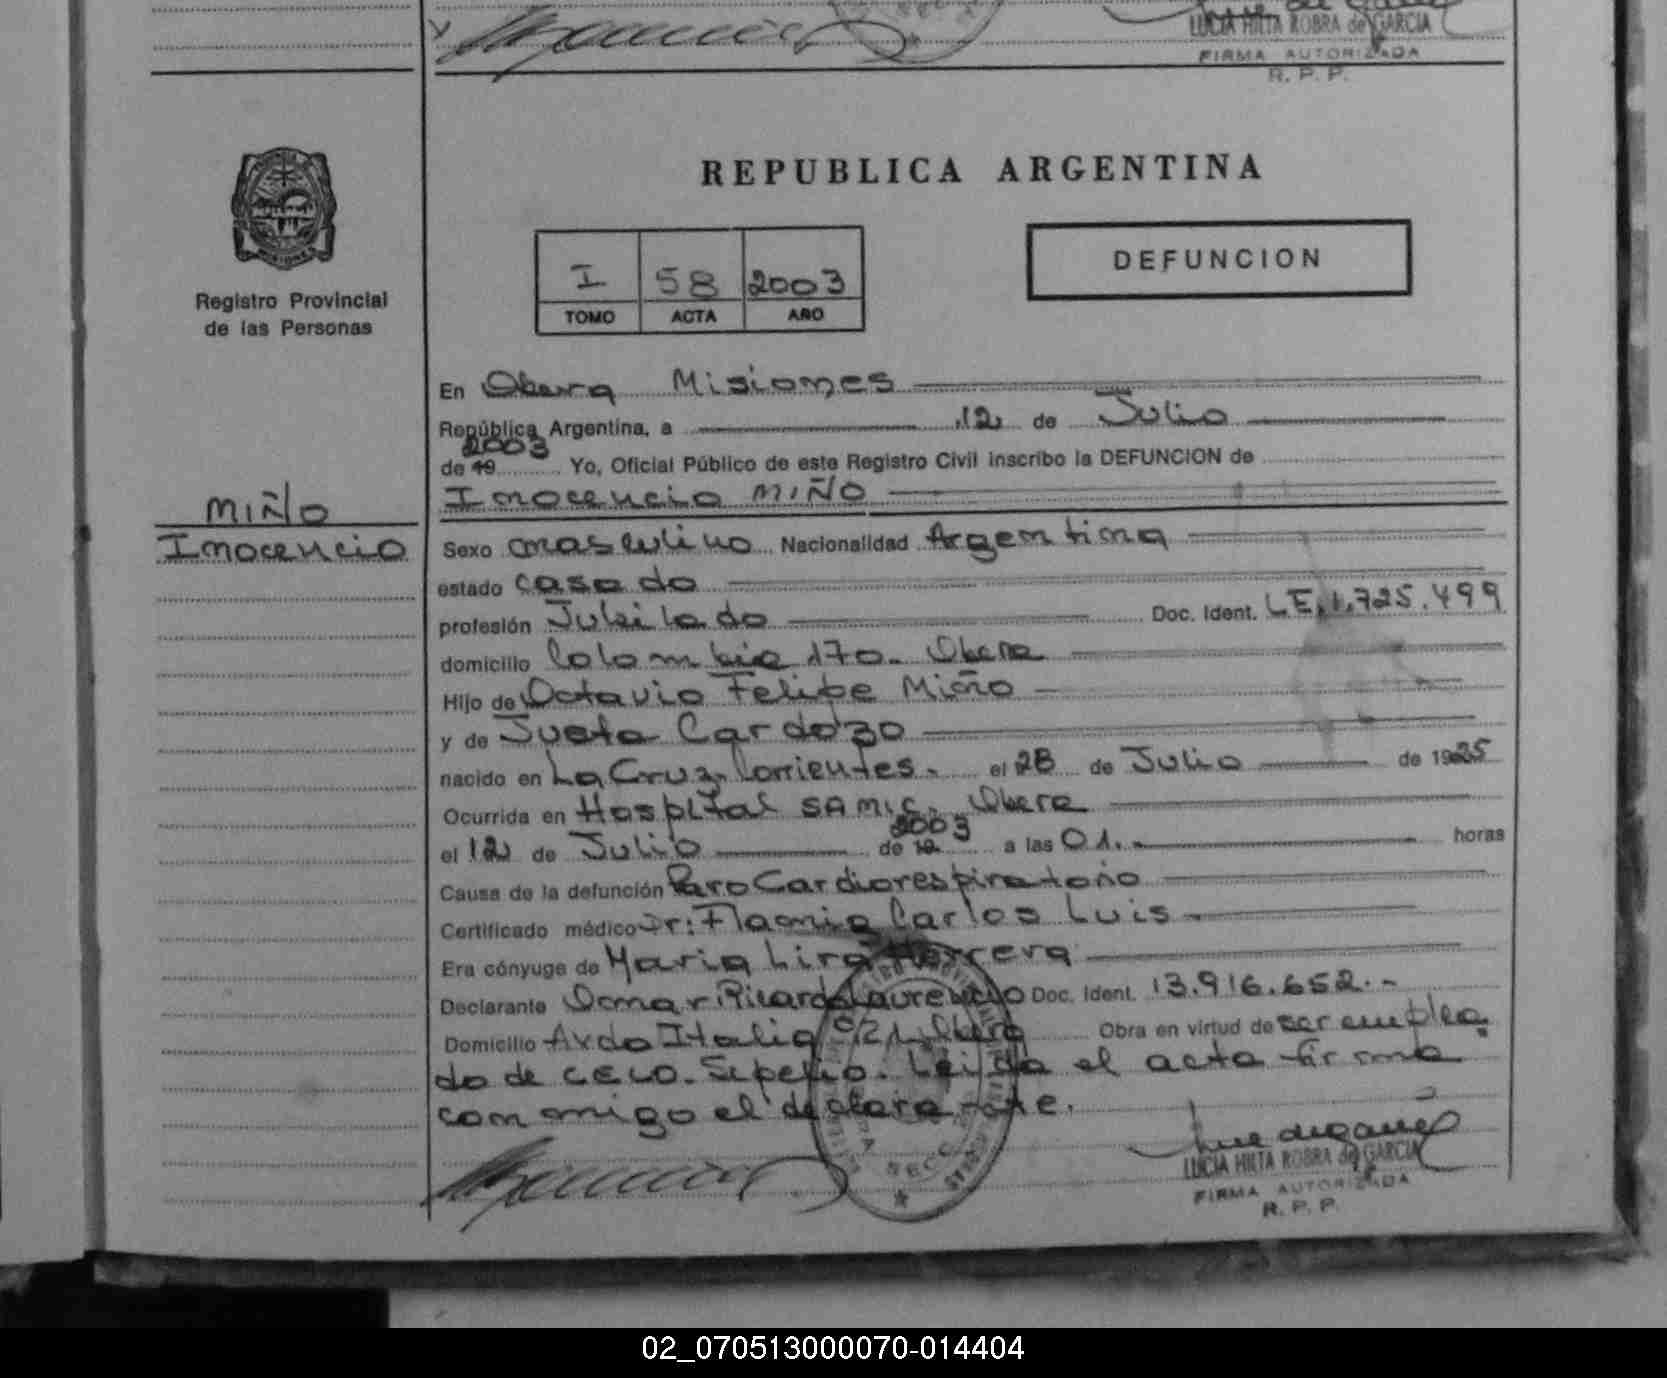 LUCIA HILTA ROBRA de GARCIA
FIRMA AUTORIZADA
R. P. P.
REPUBLICA ARGENTINA
I 58 2003
TOMO ACTA AÑO
DEFUNCION
Registro Provincial
de las Personas
MIÑO
Inocencio
En Obera Misiones
República Argentina, a 12 de Julio
2003
de 19 Yo, Oficial Público de este Registro Civil inscribo la DEFUNCION de
Inocencio MIÑO
Sexo masculino Nacionalidad Argentina
estado casado
profesión Jubilado Doc. Ident. LE.1.725.499
domicilio Colombia 170. Obera
Hijo de Octavio Felipe Miño
y de Justa Cardozo
nacido en La Cruz. Corrientes. el 28 de Julio de 1925
Ocurrida en Hospital SAMIC. Obera
2003
el 12 de Julio de 19 a las 01. horas
Causa de la defunción Paro Cardiorespiratorio
Certificado médico Dr: Flamia Carlos Luis
Era cónyuge de Maria Lira Herrera
Declarante Omar Ricardo Laurencio Doc. Ident. 13.916.652.-
Domicilio Avda Italia Obera Obra en virtud de ser emplea
do de CELO. Sepelio. Leida el acta firma
conmigo el declarante.
LUCIA HILTA ROBRA de GARCIA
FIRMA AUTORIZADA
R. P. P.
02_070513000070-014404